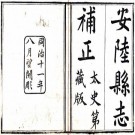 安陸縣志
補正
太史第
藏版
同治十一年
八月曾開彫